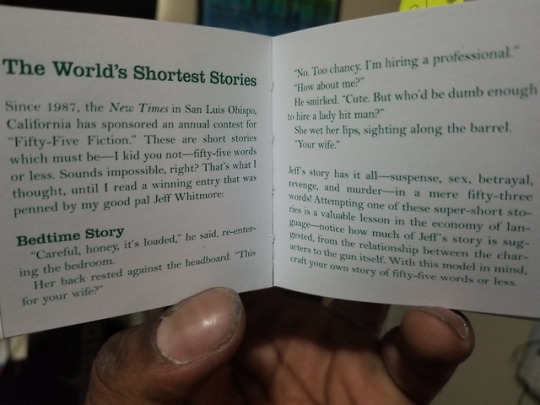 The World's Shortest Stories
Since 1987, the New Times in San Luis Obispo,
California has sponsored an annual contest for
"Fifty-Five Fiction." These are short stories
which must be—I kid you not—fifty-five words
or less. Sounds impossible, right? That's what I
thought, until I read a winning entry that was
penned by my good pal Jeff Whitmore:
Bedtime Story
"Careful, honey, it's loaded," he said, re-enter-
ing the bedroom.
Her back rested against the headboard. "This
for your wife?"
"No. Too chancy. I'm hiring a professional."
"How about me?"
He smirked. "Cute. But who'd be dumb enough
to hire a lady hit man?"
She wet her lips, sighting along the barrel.
"Your wife."
Jeff's story has it all—suspense, sex, betrayal,
revenge, and murder—in a mere fifty-three
words! Attempting one of these super-short sto-
ries is a valuable lesson in the economy of lan-
guage—notice how much of Jeff's story is sug-
gested, from the relationship between the char-
acters to the gun itself. With this model in mind,
craft your own story of fifty-five words or less.